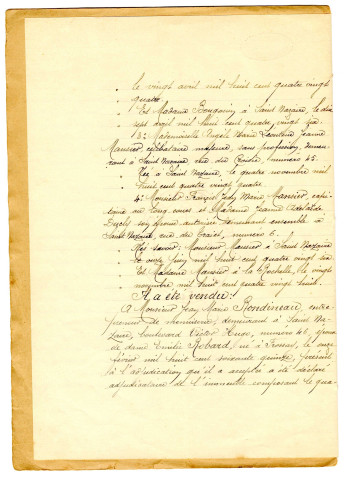 le vingt avril mil huit cent quatre vingt
quatre.
Et Madame à Saint Nazaire, le dix
sept avril mil huit cent quatre vingt six
3° Mademoiselle Angèle Marie Jeanne
Mansier, célibataire majeure, sans profession, demeu-
rant à Saint Nazaire rue du numéro 45.
Née à Saint Nazaire, le quatre novembre mil
huit cent quatre vingt quatre.
4° Monsieur François Marie Mansier, capi-
taine au long cours et Madame Jeanne
son épouse autorisée demeurant ensemble à
Saint Nazaire, rue de numéro 6.
Nés savoir: Monsieur Mansier à Saint Nazaire
le onze juin mil huit cent quatre vingt six
Et Madame Mansier à la Rochelle, le vingt
novembre mil huit cent quatre vingt huit.
Il a été vendu:
A Monsieur Jean Marie Rondineau, entre-
preneur de menuiserie, demeurant à Saint Na-
zaire, boulevard Victor Hugo, numéro 48, époux
de dame Emilie Robard, né à Frossay, le onze
février mil huit cent soixante quinze,
à l'adjudication qu'il a accepté a été déclaré
adjudicataire de l'immeuble composant le qua-